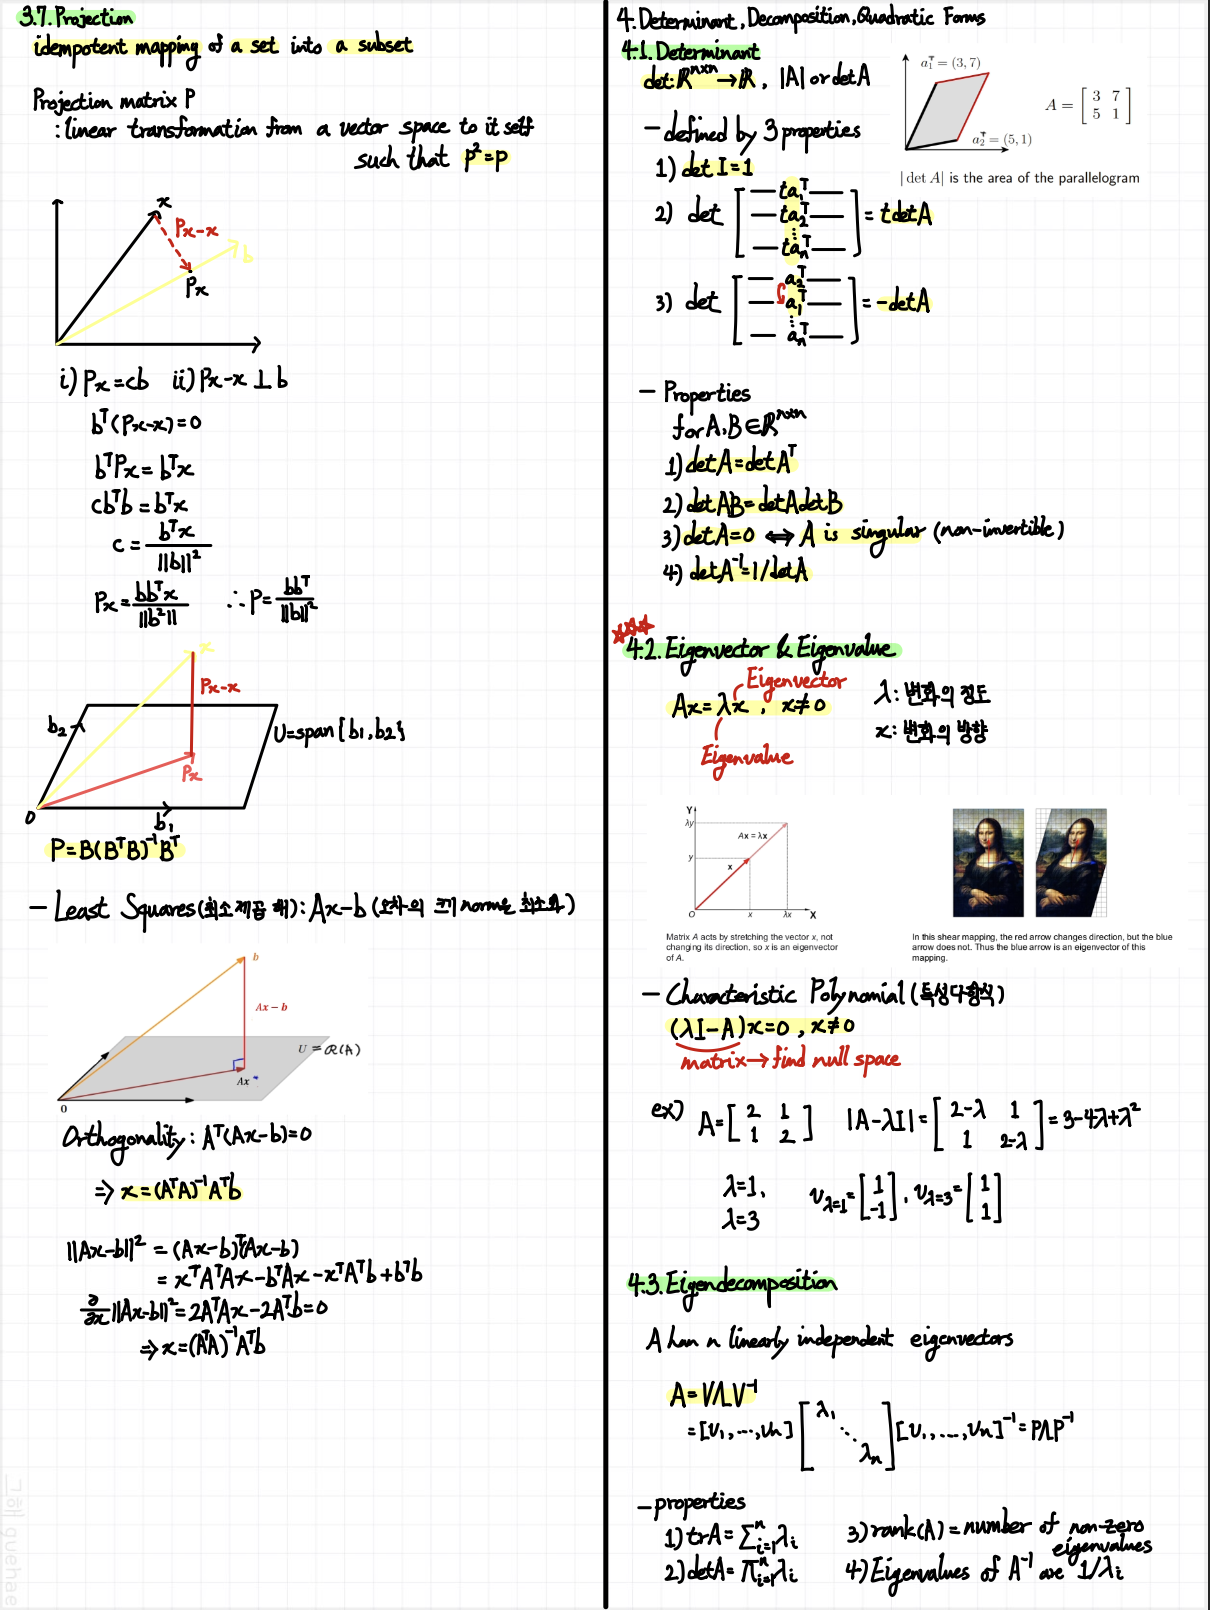 3.7. Projection
idempotent mapping of a set into a subset
Projection matrix P
: linear transformation from a vector space to it self
such that P²=P
x
Px-x
b
Px
i) Px=cb ii) Px-x⊥b
bᵀ(Px-x)=0
bᵀPx=bᵀx
cbᵀb=bᵀx
c=bᵀx/||b||²
Px=bbᵀx/||b²|| ∴P=bbᵀ/||b||²
x
Px-x
b₂
U=span{b₁,b₂}
Px
0
b₁
P=B(BᵀB)⁻¹Bᵀ
- Least Squares(최소제곱 해): Ax-b (오차의 크기 norm을 최소화)
b
Ax − b
U = R(A)
Ax*
0
Orthogonality: Aᵀ(Ax-b)=0
⇒ x=(AᵀA)⁻¹Aᵀb
||Ax-b||² = (Ax-b)ᵀ(Ax-b)
= xᵀAᵀAx-bᵀAx-xᵀAᵀb+bᵀb
∂/∂x||Ax-b||²=2AᵀAx-2Aᵀb=0
⇒ x=(AᵀA)⁻¹Aᵀb
그해 guehae
4. Determinant, Decomposition, Quadratic Forms
4.1. Determinant
det: ℝⁿˣⁿ→ℝ, |A| or det A
a₁ᵀ = (3, 7)
A = [3 7
5 1]
a₂ᵀ = (5, 1)
| det A| is the area of the parallelogram
- defined by 3 properties
1) det I=1
2) det [—ta₁ᵀ—
—ta₂ᵀ—
⋮
—taₙᵀ—] = tdetA
3) det [—a₂ᵀ—
—a₁ᵀ—
⋮
—aₙᵀ—] = -detA
- Properties
for A,B∈ℝⁿˣⁿ
1) detA=detAᵀ
2) detAB=detAdetB
3) detA=0 ⇔ A is singular (non-invertible)
4) detA⁻¹=1/detA
☆☆☆
4.2. Eigenvector & Eigenvalue
Eigenvector
Ax=λx, x≠0
Eigenvalue
λ:변화의 정도
x: 변화의 방향
Y
λy
Ax = λx
y
x
O x λx X
Matrix A acts by stretching the vector x, not
changing its direction, so x is an eigenvector
of A.
In this shear mapping, the red arrow changes direction, but the blue
arrow does not. Thus the blue arrow is an eigenvector of this
mapping.
- Characteristic Polynomial (특성다항식)
(λI-A)x=0, x≠0
matrix→find null space
ex) A=[2 1
1 2] |A-λI|=[2-λ 1
1 2-λ]=3-4λ+λ²
λ=1, v_λ=1=[1
-1], v_λ=3=[1
1]
λ=3
4.3. Eigendecomposition
A has n linearly independent eigenvectors
A=VΛV⁻¹
=[v₁,…,vₙ][λ₁
⋱
λₙ][v₁,…,vₙ]⁻¹=PΛP⁻¹
- properties
1) trA=∑ⁿᵢ₌₁λᵢ
2) detA=∏ⁿᵢ₌₁λᵢ
3) rank(A)=number of non-zero
eigenvalues
4) Eigenvalues of A⁻¹ are 1/λᵢ